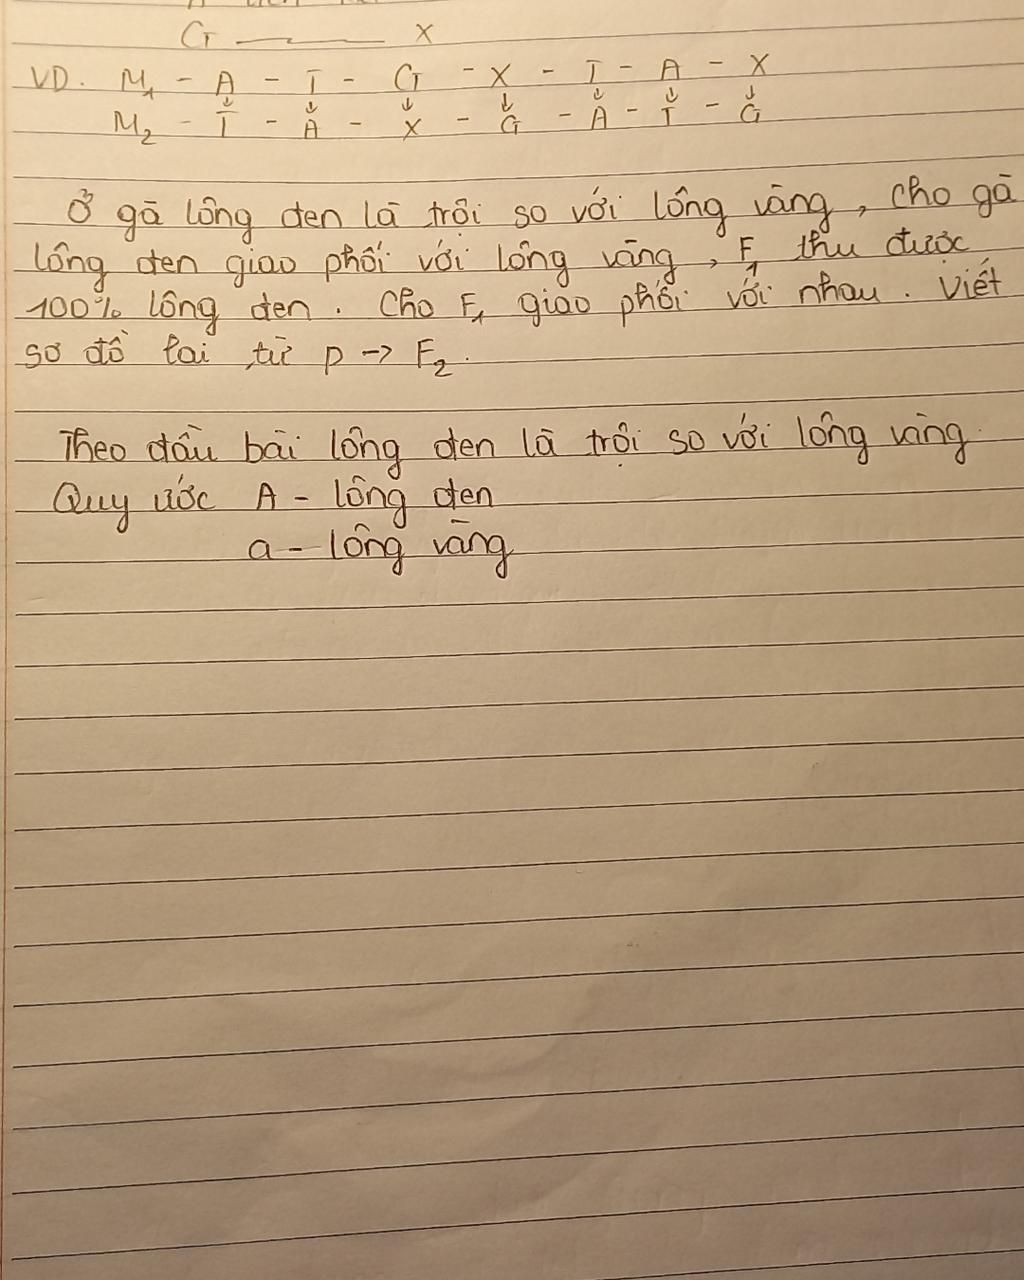 G X
VD. M1 - A - T - G - X - T - A - X
M2 - T - A - X - G - A - T - G
Ở gà lông đen là trội so với lông vàng, cho gà
lông đen giao phối với lông vàng, F1 thu được
100% lông đen. Cho F1 giao phối với nhau. Viết
sơ đồ lai từ P -> F2.
Theo đầu bài lông đen là trội so với lông vàng.
Quy ước A - lông đen
a - lông vàng